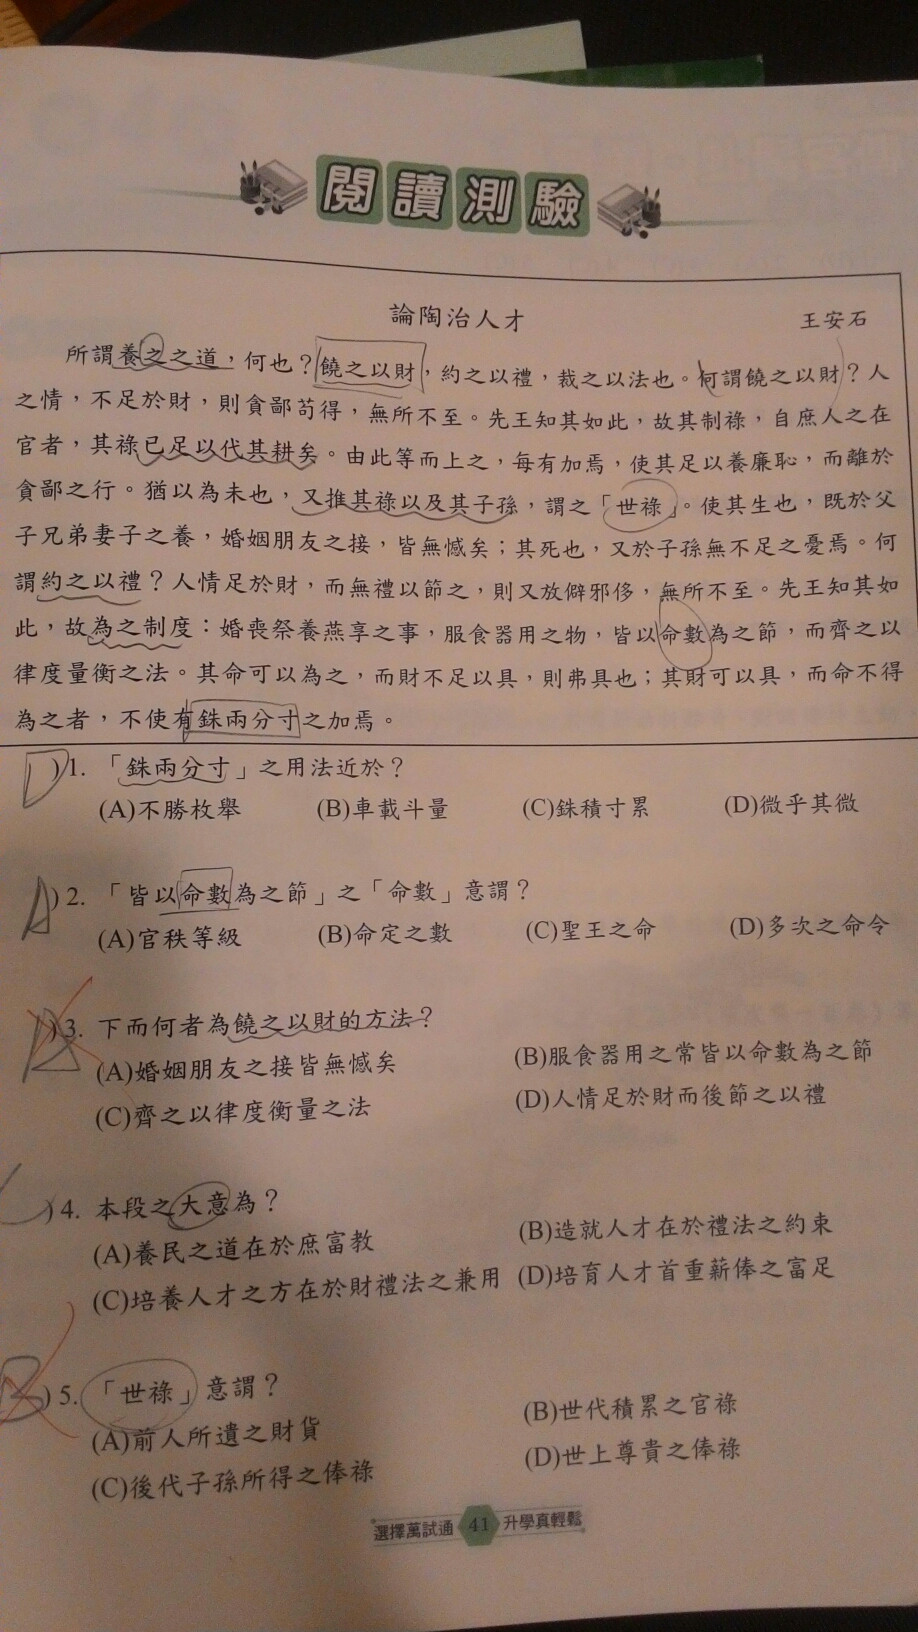 閱讀測驗
論陶冶人才 王安石
所謂養之之道，何也？饒之以財，約之以禮，裁之以法也。何謂饒之以財？人
之情，不足於財，則貪鄙苟得，無所不至。先王知其如此，故其制祿，自庶人之在
官者，其祿已足以代其耕矣。由此等而上之，每有加焉，使其足以養廉恥，而離於
貪鄙之行。猶以為未也，又推其祿以及其子孫，謂之「世祿」。使其生也，既於父
子兄弟妻子之養，婚姻朋友之接，皆無憾矣；其死也，又於子孫無不足之憂焉。何
謂約之以禮？人情足於財，而無禮以節之，則又放僻邪侈，無所不至。先王知其如
此，故為之制度：婚喪祭養燕享之事，服食器用之物，皆以命數為之節，而齊之以
律度量衡之法。其命可以為之，而財不足以具，則弗具也；其財可以具，而命不得
為之者，不使有銖兩分寸之加焉。
D )1. 「銖兩分寸」之用法近於？
(A)不勝枚舉 (B)車載斗量 (C)銖積寸累 (D)微乎其微
A )2. 「皆以命數為之節」之「命數」意謂？
(A)官秩等級 (B)命定之數 (C)聖王之命 (D)多次之命令
)3. 下而何者為饒之以財的方法？
(A)婚姻朋友之接皆無憾矣 (B)服食器用之常皆以命數為之節
(C)齊之以律度衡量之法 (D)人情足於財而後節之以禮
)4. 本段之大意為？
(A)養民之道在於庶富教 (B)造就人才在於禮法之約束
(C)培養人才之方在於財禮法之兼用 (D)培育人才首重薪俸之富足
B )5. 「世祿」意謂？
(A)前人所遺之財貨 (B)世代積累之官祿
(C)後代子孫所得之俸祿 (D)世上尊貴之俸祿
選擇萬試通 41 升學真輕鬆